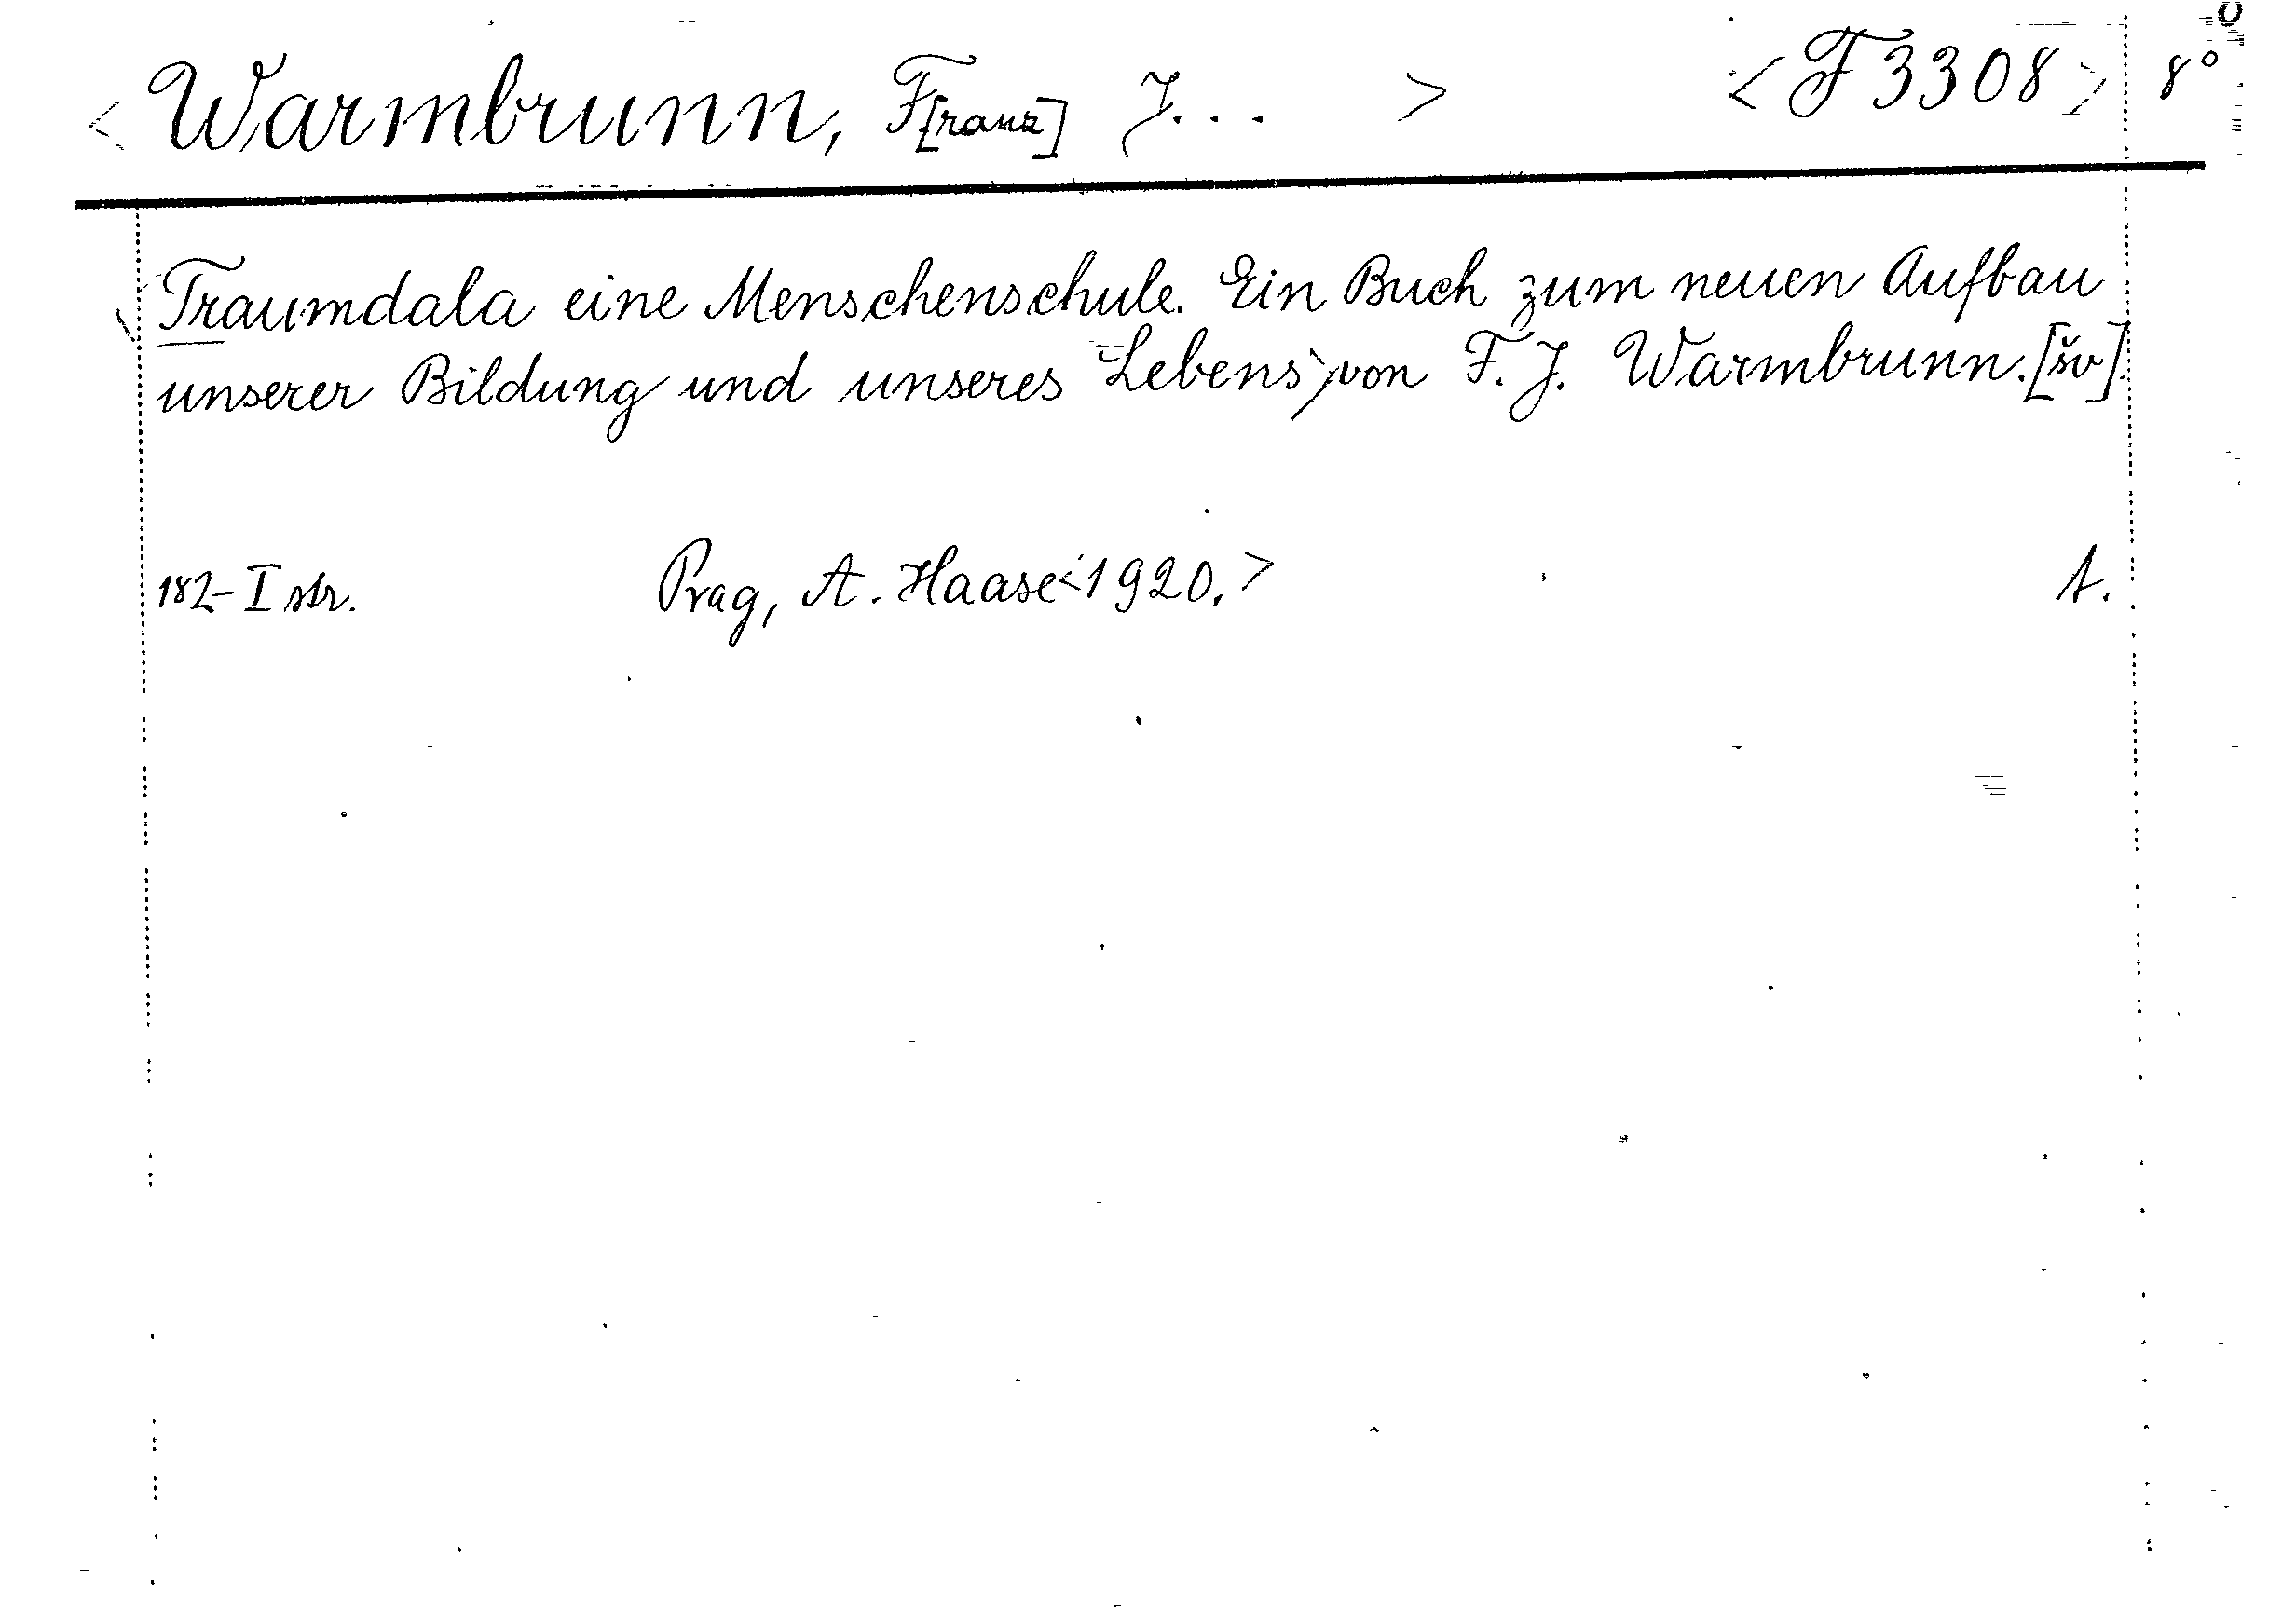 < Warmbrunn, F[ranz] J... > <F 3308> 8°
<Traumdala eine Menschenschule. Ein Buch zum neuen Aufbau
unserer Bildung und unseres Lebens> von F. J. Warmbrunn. [šv]
182-I str. Prag, A. Haase <1920.> A.